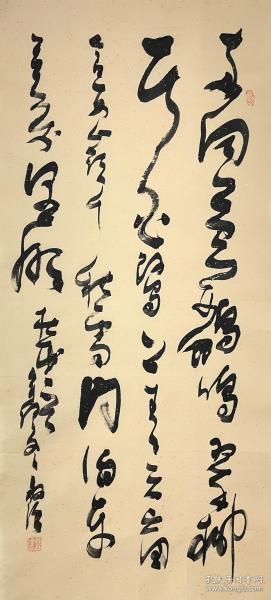 两個黃鸝鳴翠柳
一行白鷺上青天窗
含西嶺千秋雪門泊東
吳萬里船
孔夫子旧书网